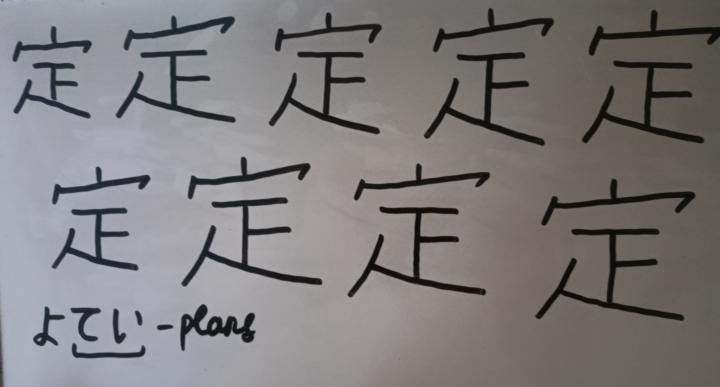 定定定定定
定定定定
よてい-plans